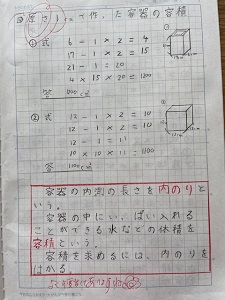 厚さ1cmで作った容器の容積
① 式 6 - 1 × 2 = 4
17 - 1 × 2 = 15
21 - 1 = 20
4 × 15 × 20 = 1200
答 1200cm³
② 式 12 - 1 × 2 = 10
12 - 1 × 2 = 10
12 - 1 = 11
10 × 10 × 11 = 1100
答 1100cm³
容器の内側の長さを内のりと
いう。
容器の中にいっぱい入れる
ことができる水などの体積を
容積という。
容積を求めるには、内のりを
はかる。